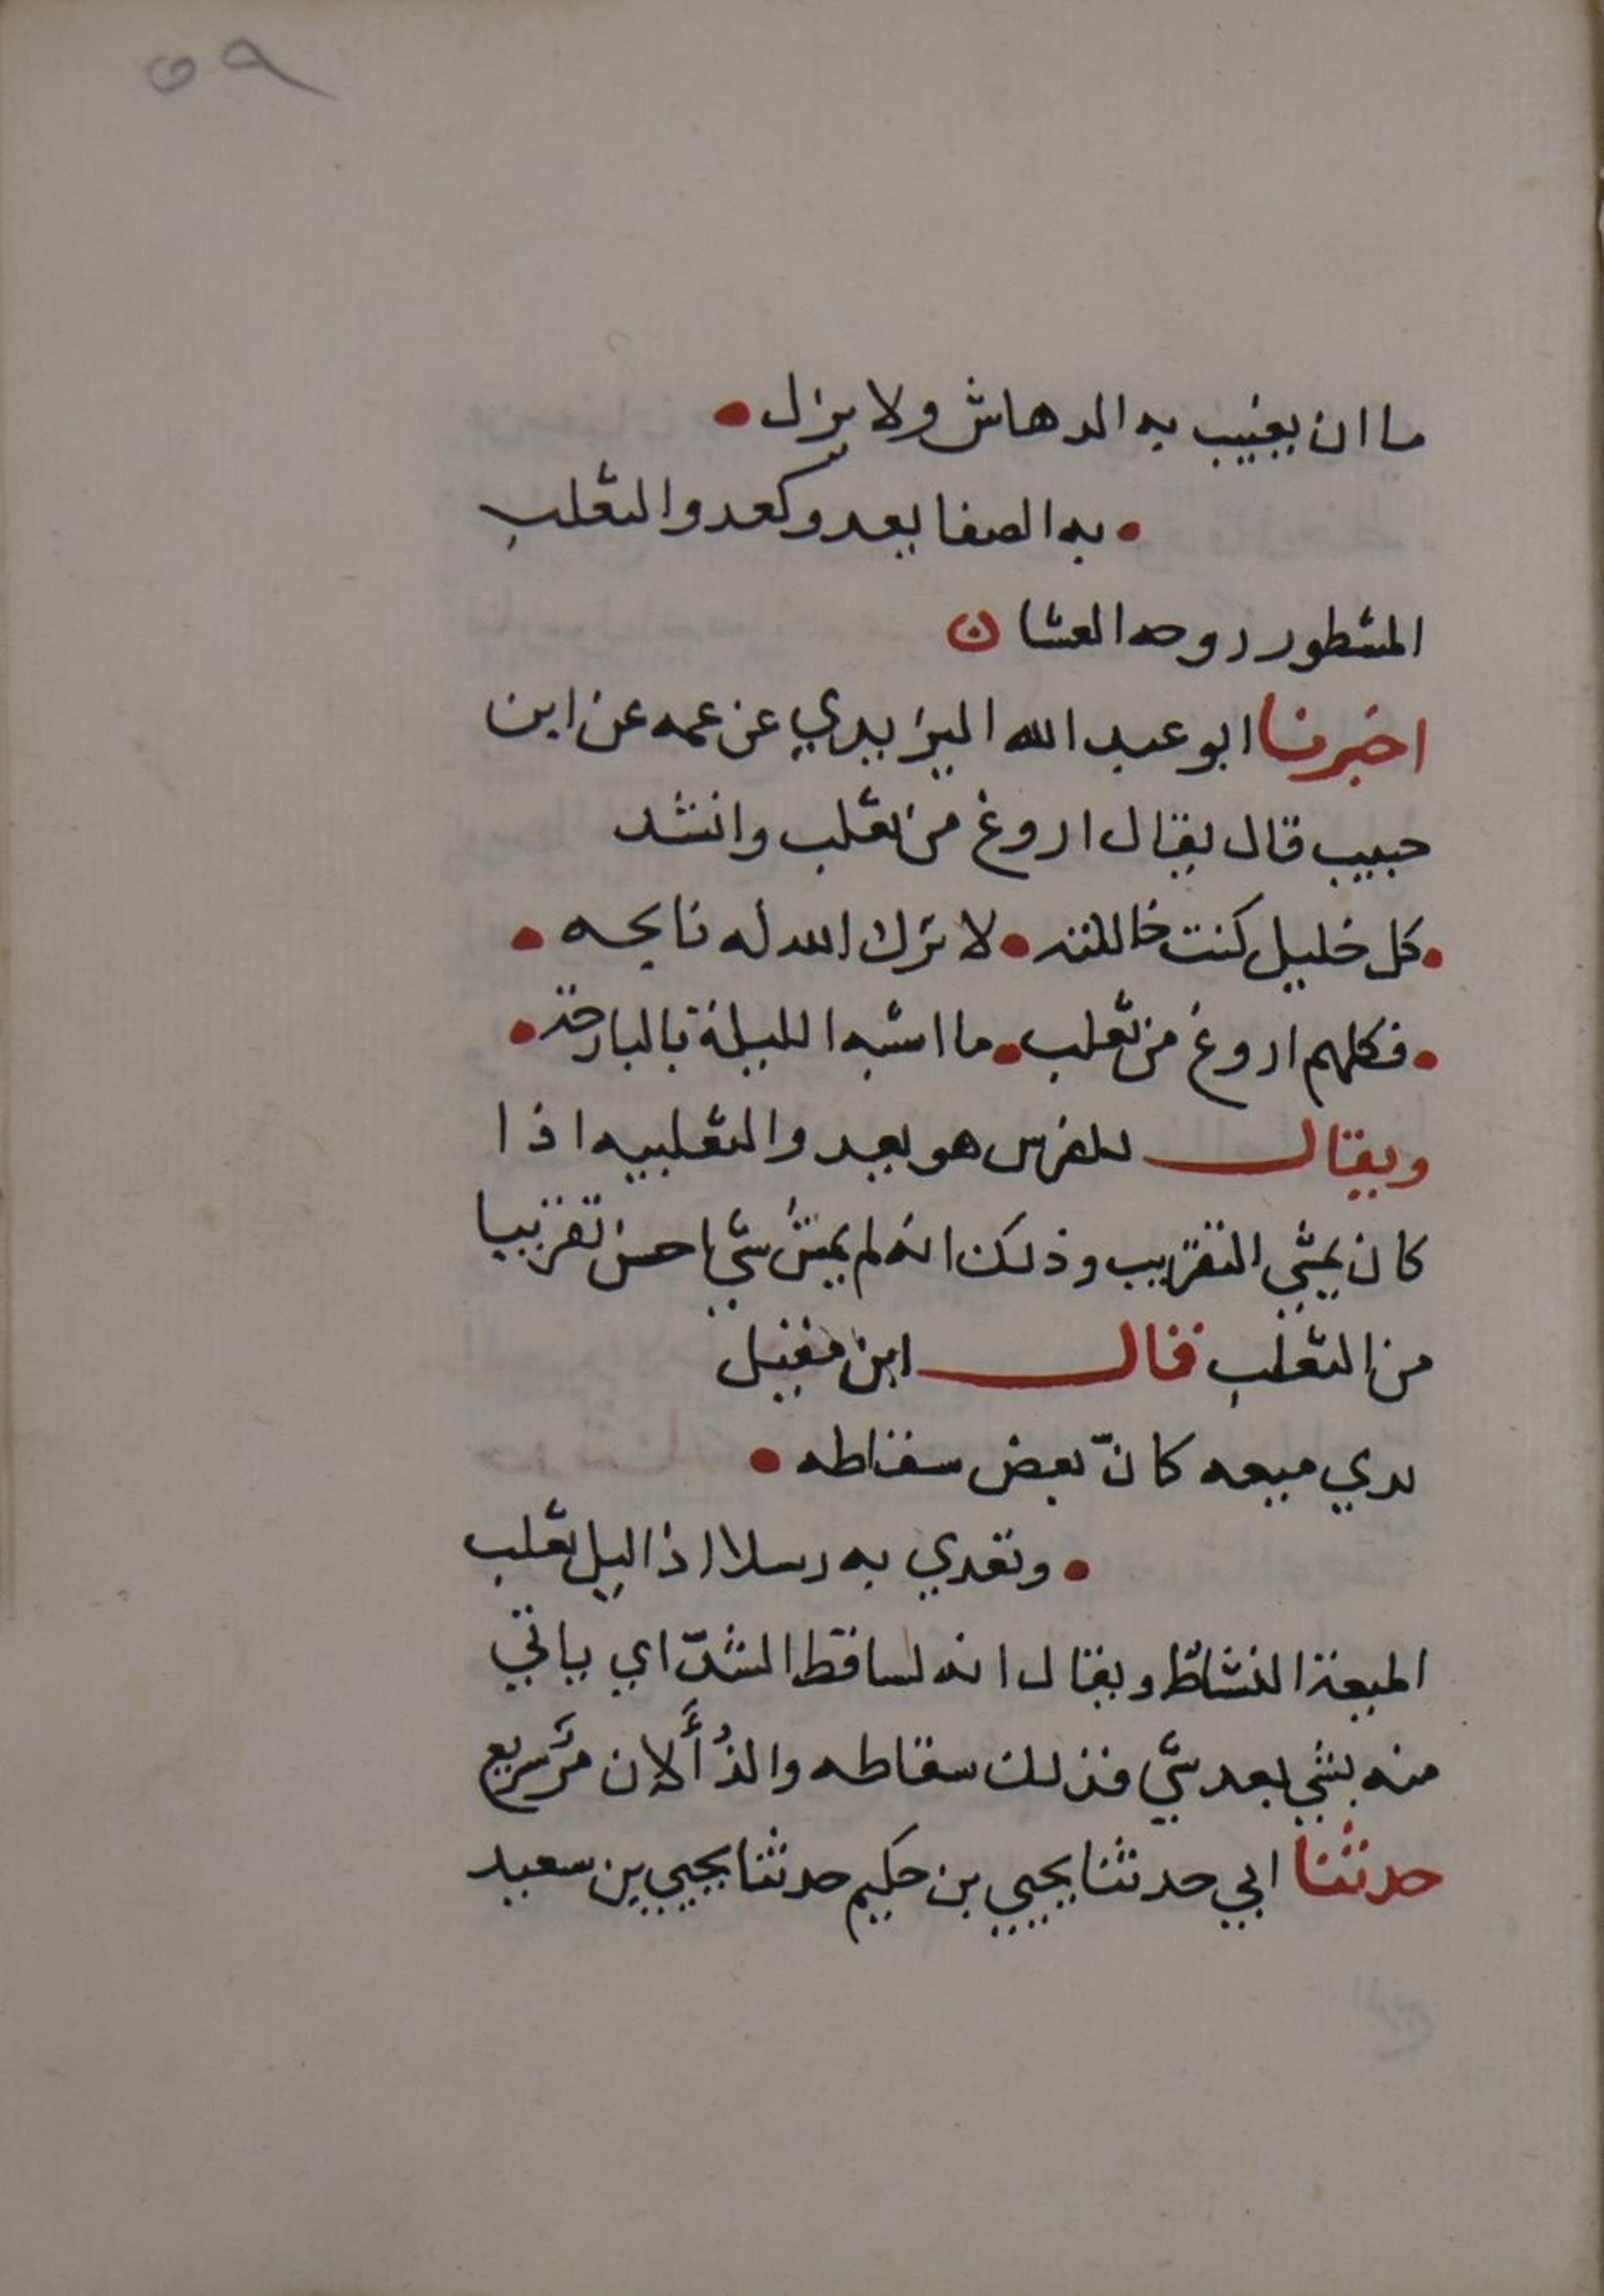 ٥٩
ما ان يغيب به الدهاش ولا يزل
به الصفا يعدو كعدو الثعلب
المشطور روحه العشان
اخبرنا ابو عبد الله اليزيدي عن عمه عن ابن
حبيب قال يقال اروغ من ثعلب وانشد
كل خليل كنت خاللته لا ترك الله له نابحه
فكلهم اروغ من ثعلب ما اشبه الليلة بالبارحة
ويقال للفرس هو يعدو الثعلبيه اذا
كان يمشي التقريب وذلك انه لم يمش شي احسن تقريبا
من الثعلب فقال ابن مقبل
بدي ميعه كانّ بعض سقاطه
وتعدي به رسلا اذا ليل ثعلب
الميعة النشاط ويقال انه لساقط الشدّ اي ياتي
منه بشي بعد شي فذلك سقاطه والذُأَلان مَرّ سريع
حدثنا ابي حدثنا يحيي بن حكيم حدثنا يحيي بن سعيد